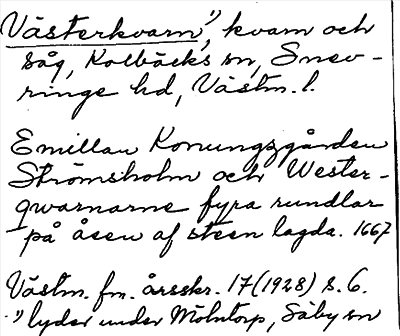 Västerkvarn", kvarn och
såg, Kolbäcks sn, Snev-
ringe hd, Västm. l.
Emillan Konungzgården
Strömsholm och Wester-
qwarnarne fyra rundlar
på åsen af steen lagda. 1667
Västm. fm. årsskr. 17 (1928) s. 6.
" lyder under Mölntorp, Säby sn